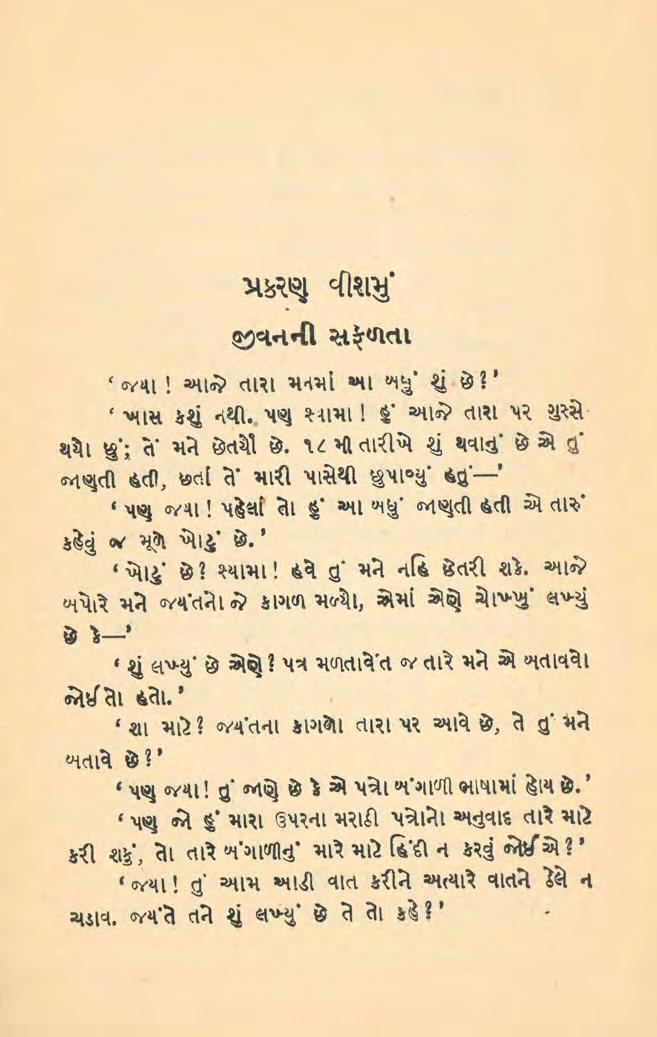 પ્રકરણ વીશમું
જીવનની સફળતા
‘ જયા ! આજે તારા મનમાં આ બધું શું છે ? ’
‘ ખાસ કશું નથી. પણ શ્યામા ! હું આજે તારા પર ગુસ્સે
થયો છું; તેં મને છેતર્યો છે. ૧૮ મી તારીખે શું થવાનું છે એ તું
જાણતી હતી, છતાં તેં મારી પાસેથી છુપાવ્યું હતું—’
‘ પણ જયા ! પહેલાં તો હું આ બધું જાણતી હતી એ તારું
કહેવું જ મૂળે ખોટું છે. ’
‘ ખોટું છે ? શ્યામા ! હવે તું મને નહિ છેતરી શકે. આજે
બપોરે મને જયંતનો જે કાગળ મળ્યો, એમાં એણે ચોખ્ખું લખ્યું
છે કે—’
‘ શું લખ્યું છે એણે ? પત્ર મળતાવેંત જ તારે મને એ બતાવવો
જોઈતો હતો. ’
‘ શા માટે ? જયંતના કાગળો તારા પર આવે છે, તે તું મને
બતાવે છે ? ’
‘ પણ જયા ! તું જાણે છે કે એ પત્રો બંગાળી ભાષામાં હોય છે. ’
‘ પણ જો હું મારા ઉપરના મરાઠી પત્રોનો અનુવાદ તારે માટે
કરી શકું, તો તારે બંગાળીનું મારે માટે હિંદી ન કરવું જોઈએ ? ’
‘ જયા ! તું આમ આડી વાત કરીને અત્યારે વાતને ઠેલે ન
ચડાવ. જયંતે તને શું લખ્યું છે તે તો કહે ? ’